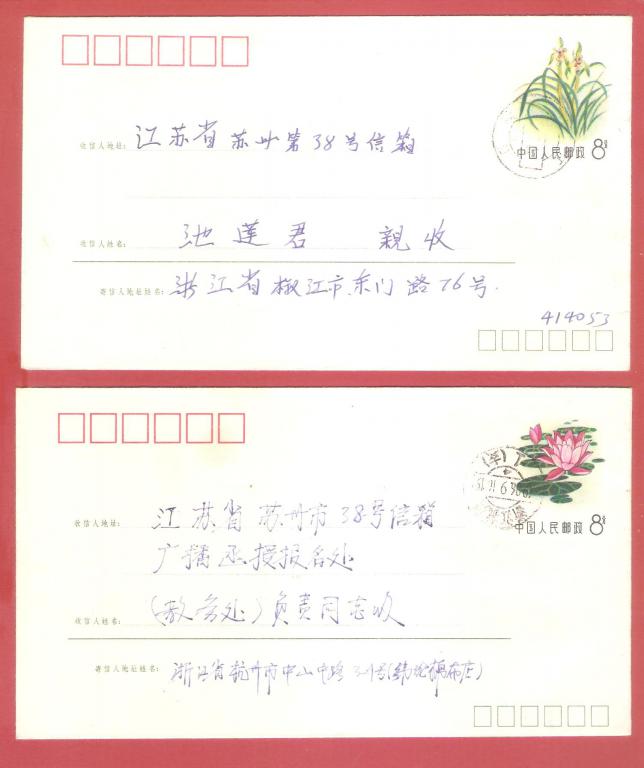 中国人民邮政 8分
收信人地址: 江苏省苏州第38号信箱
收信人姓名: 池莲君 親收
寄信人地址姓名: 浙江省椒江市东门路76号.
414053
中国人民邮政 8分
收信人地址: 江苏省苏州市38号信箱
广播函授报名处
收信人姓名: (教务处)负责同志收
寄信人地址姓名: 浙江省杭州市中山中路321号(纬纶棉布庄)